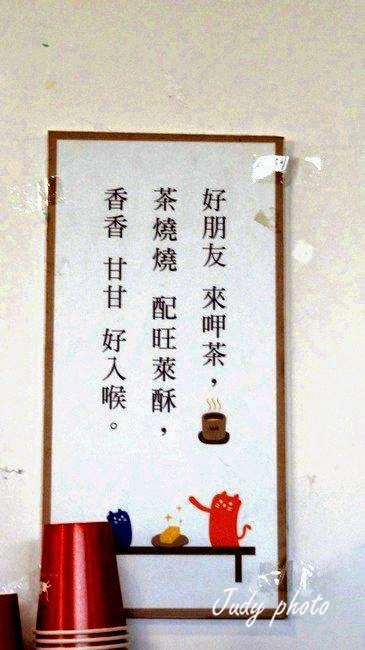 好朋友 來呷茶，
茶燒燒 配旺萊酥，
香香 甘甘 好入喉。
Judy photo